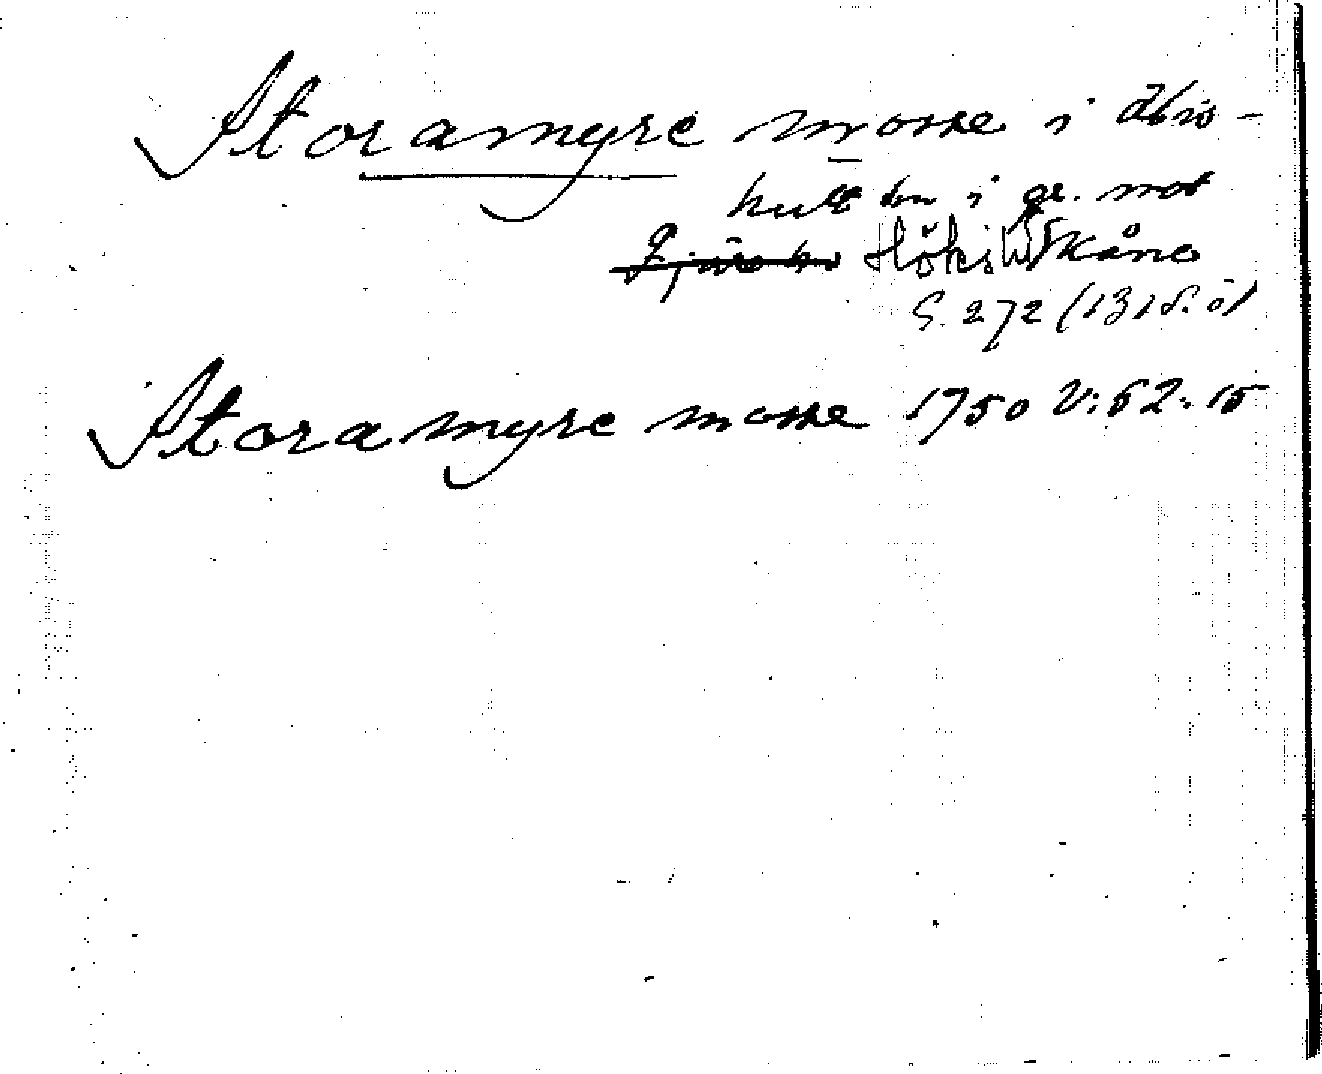 Storamyre mosse i Älvs-
hult by i gr. mot
Höks i Skåne
S. 272 (1315. öl
Storamyre mosse 1750 V:62.15